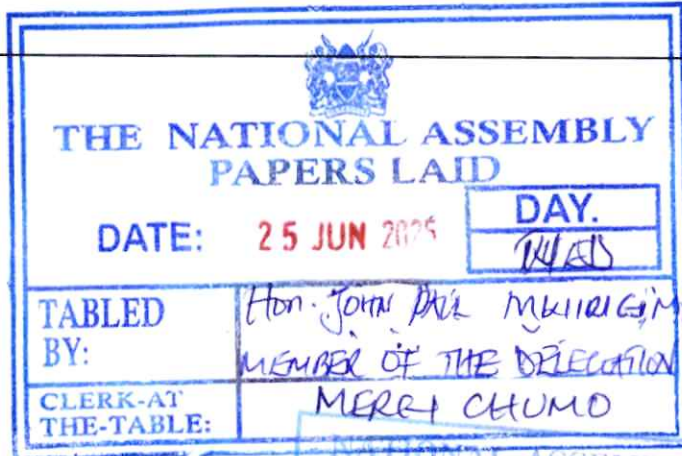 THE NATIONAL ASSEMBLY
PAPERS LAID
DATE: 25 JUN 2025
DAY.
TABLED BY: Hon. JOHN PAUL
MEMBER OF THE DELEGATION
CLERK-AT THE-TABLE: CHUMO
NATIONAL